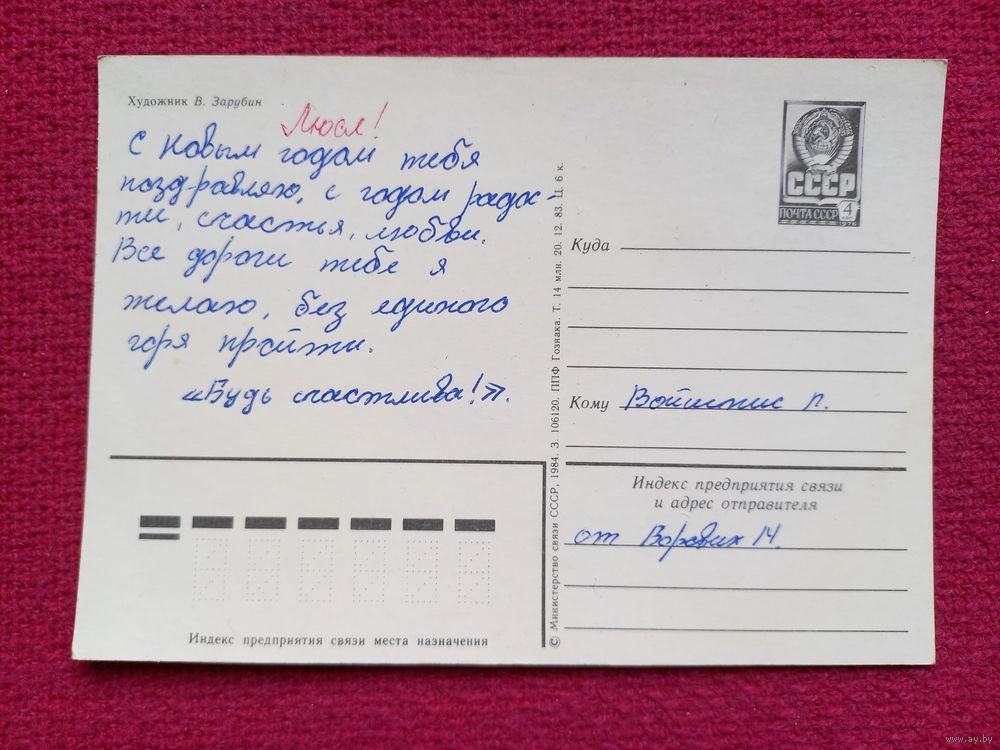 Художник В. Зарубин
Люся!
С Новым годом тебя
поздравляю, с годом радос-
ти, счастья, любви.
Все дороги тебе я
желаю, без единого
горя пройти.
«Будь счастлива!».
СССР
ПОЧТА СССР 4
1976
Куда
Кому
от
Индекс предприятия связи
и адрес отправителя
Индекс предприятия связи места назначения
© Министерство связи СССР, 1984. З. 106120. ППФ Гознака. Т. 14 млн. 20. 12. 83. Ц. 6 к.
www.ay.by